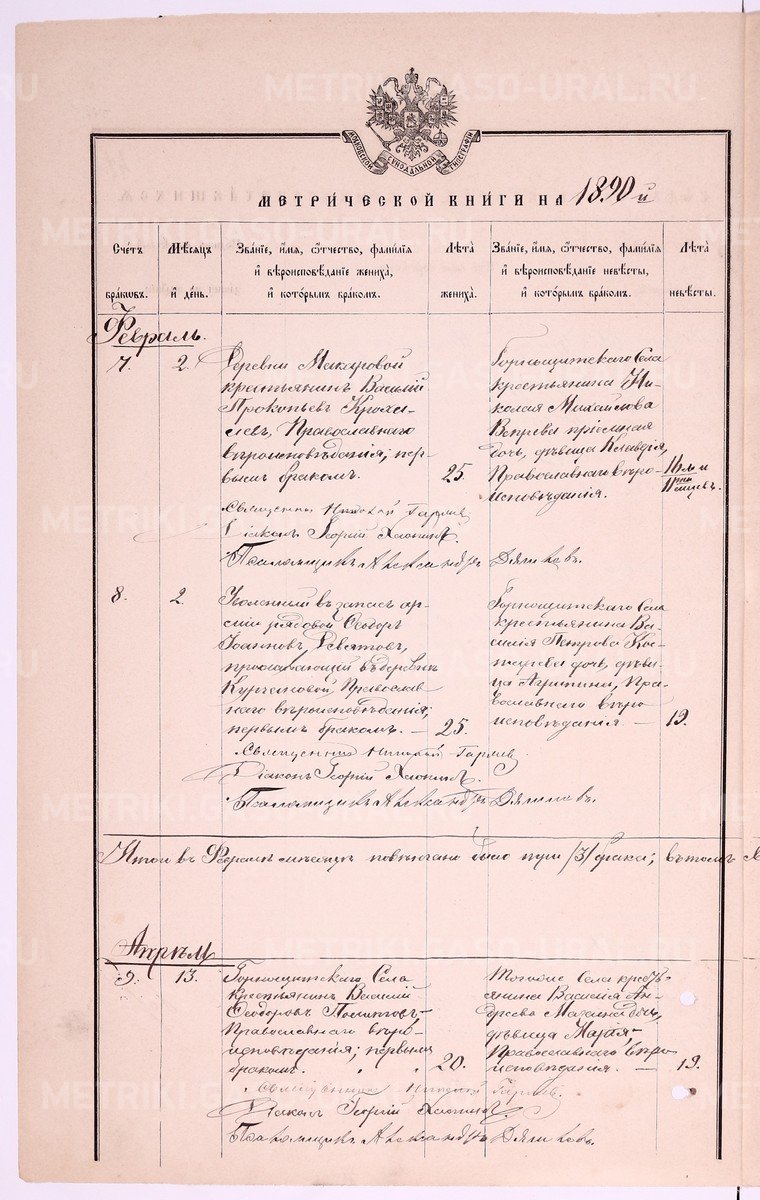 METRIKI.GASO-URAL.RU
МОСКОВСКОЙ СѴНОДАЛЬНОЙ ТИПОГРАФІИ
МЕТРИЧЕСКОЙ КНИГИ НА 1890 й
Счетъ браковъ.
Мѣсяцъ и день.
Званіе, имя, отчество, фамилія и вѣроисповѣданіе жениха, и которымъ бракомъ.
Лѣта жениха.
Званіе, имя, отчество, фамилія и вѣроисповѣданіе невѣсты, и которымъ бракомъ.
Лѣта невѣсты.
Февраль.
7. 2.
Деревни Макаровой
крестьянинъ Василій
Прокопьевъ
Православнаго
вѣроисповѣданія, пер-
вымъ бракомъ.
25.
Горнощитскаго Села
крестьянина Ни-
колая Михайлова
пріемная
дочь, дѣвица Клавдія,
Православнаго вѣро-
исповѣданія.
16 л. и
11 мѣсяцевъ.
Священникъ Николай
Діаконъ Георгій
Псаломщикъ Александръ
8. 2.
Уволенный въ запасъ ар-
міи рядовой Ѳеодоръ
Іоанновъ Девятовъ,
проживающій въ деревнѣ
Кургановой, Православ-
наго вѣроисповѣданія,
первымъ бракомъ. —
25.
Горнощитскаго Села
крестьянина Ва-
силія Петрова
дочь, дѣви-
ца Агрипина, Пра-
вославнаго вѣро-
исповѣданія. —
19.
Священникъ Николай
Діаконъ Георгій
Псаломщикъ Александръ
Итого въ Февралѣ мѣсяцѣ повѣнчано было три /3/ брака; въ томъ
Апрѣль
9. 13.
Горнощитскаго Села
крестьянинъ Василій
Ѳеодоровъ
Православнаго вѣро-
исповѣданія; первымъ
бракомъ.
20.
Тогоже Села кресть-
янина Василія Ан-
дреева дочь,
дѣвица Марія,
Православнаго вѣро-
исповѣданія. —
19.
Священникъ Николай
Діаконъ Георгій
Псаломщикъ Александръ